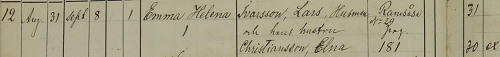 12 Aug. 31 Sept 8 1 Emma Helena Svarsson, Lars, Husman 31
1 och hans hustru
Christiansson, Elna 181 30 ex